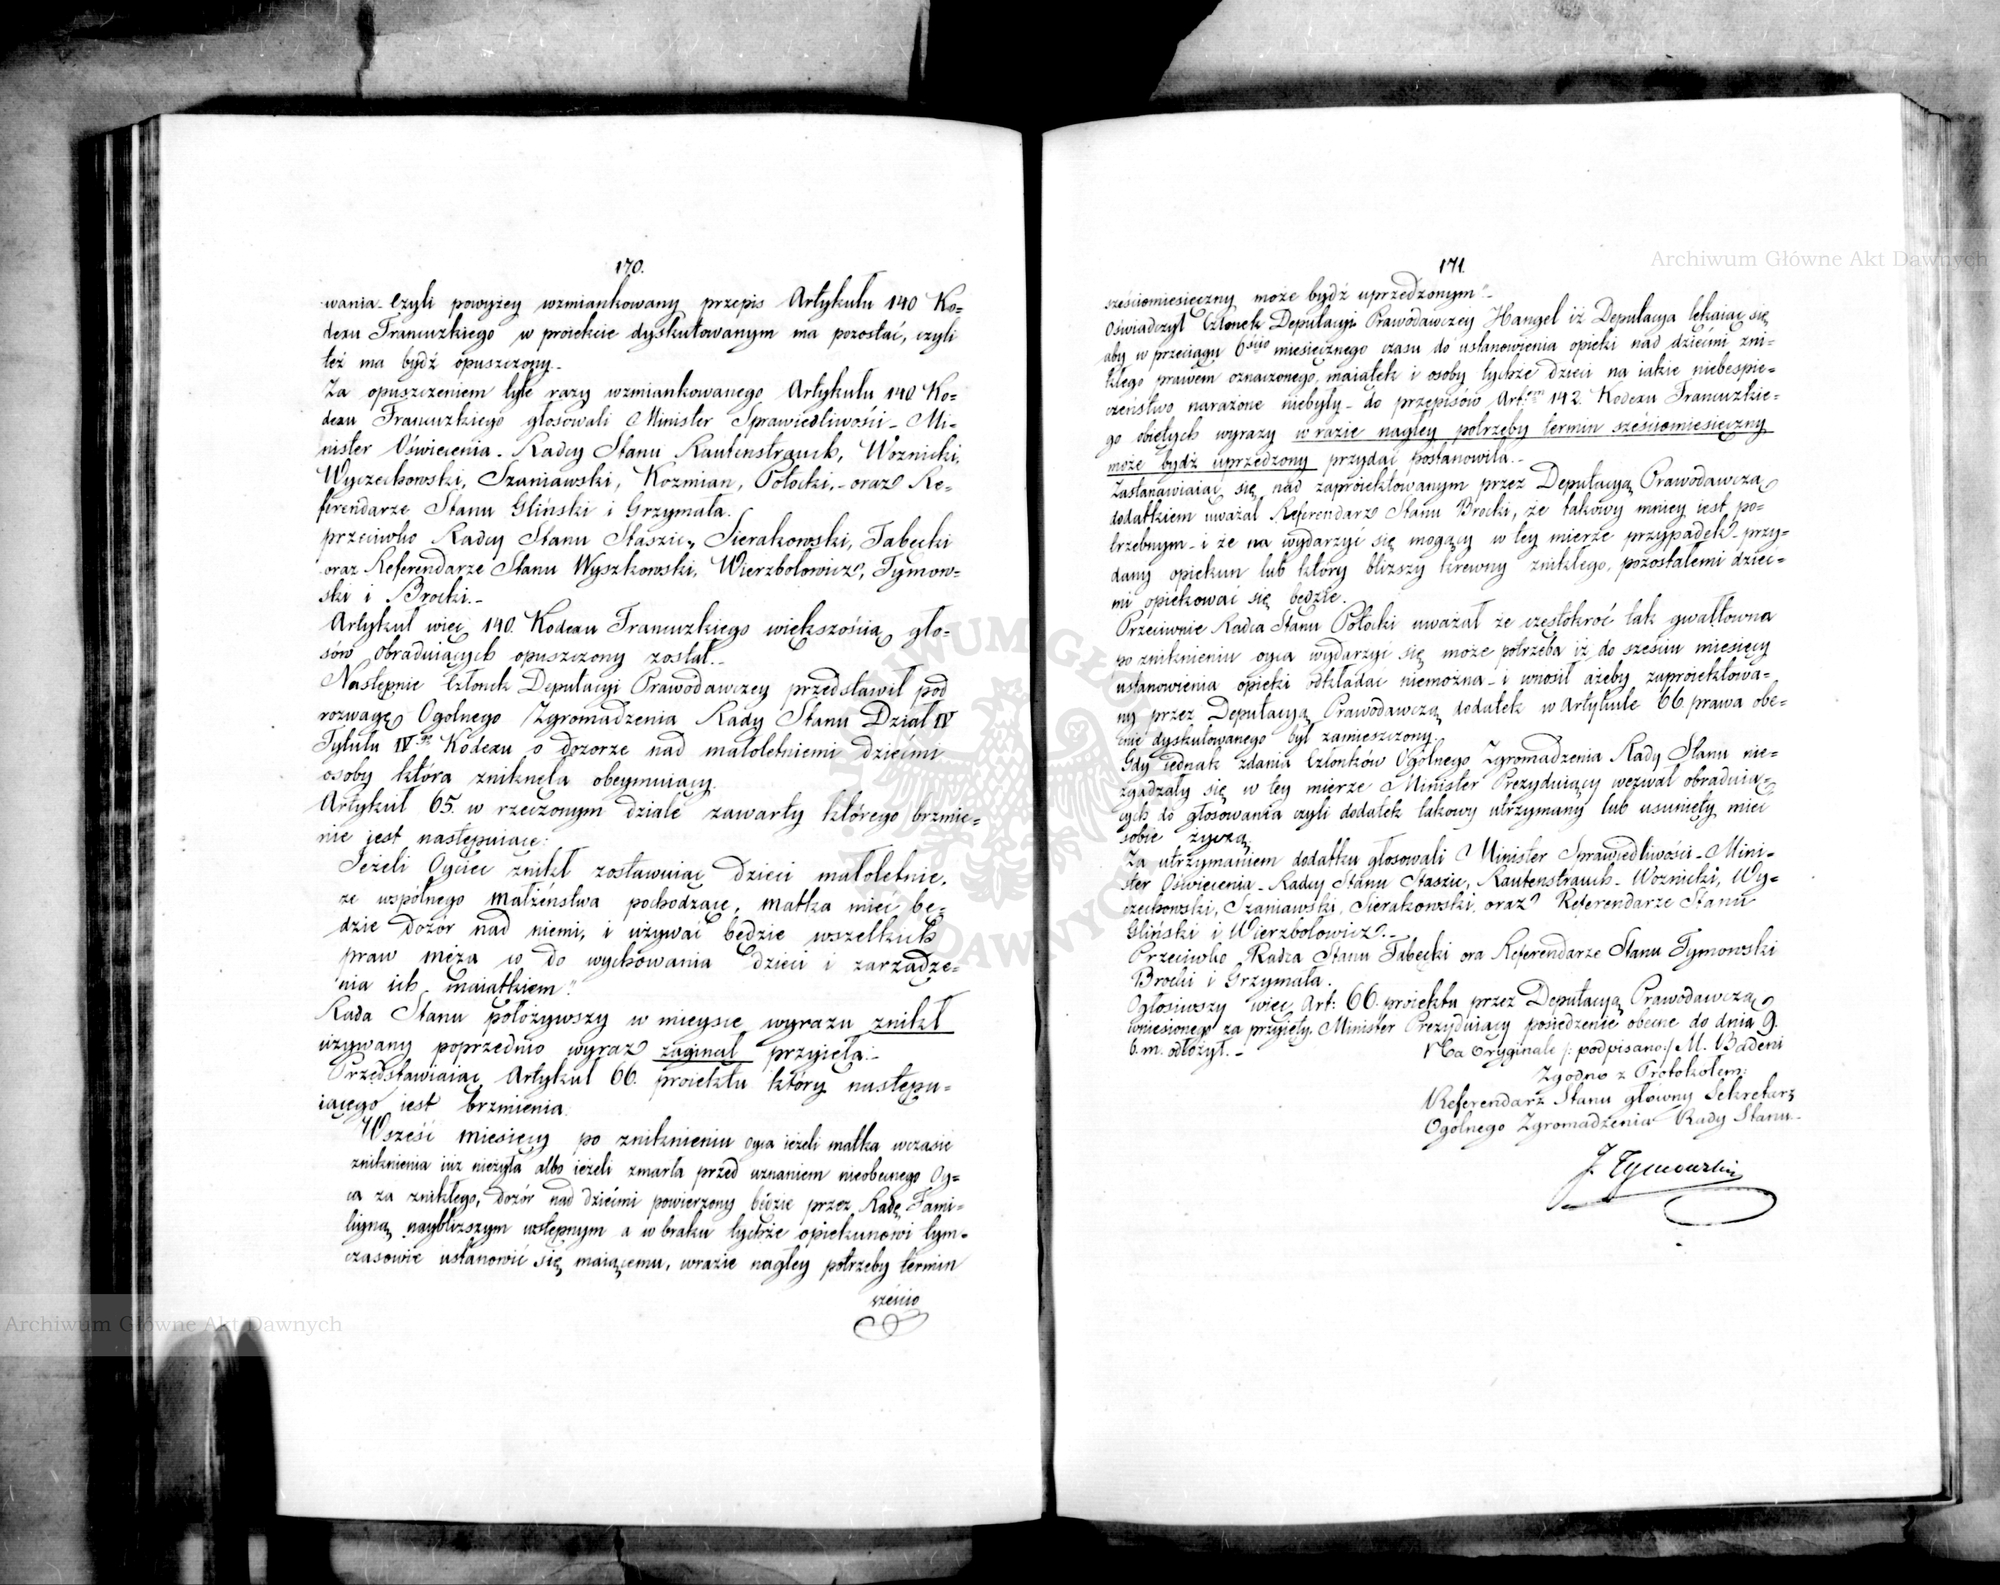 170.
wania. Czyli powyżey wzmiankowany przepis Artykułu 140 Ko=
dexu Francuzkiego w proiekcie dyskutowanym ma pozostać, czyli
też ma bydź opuszczony.-
Za opuszczeniem tyle razy wzmiankowanego Artykułu 140 Ko=
dexu Francuzkiego głosowali Minister Sprawiedliwości - Mi=
nister Oświecenia. Radcy Stanu Rautenstrauch, Woznicki,
Wyczechowski, Szaniawski, Kozmian, Potocki, - oraz Re=
ferendarze Stanu Gliński i Grzymała.
przeciwko Radcy Stanu Staszic, Sierakowski, Tabęcki
oraz Referendarze Stanu Wyszkowski, Wierzbołowicz, Tymow=
ski i Brocki.-
Artykuł więc 140. Kodexu Francuzkiego większością gło=
sów obraduiących opuszczony został.-
Następnie Członek Deputacyi Prawodawczey przedstawił pod
rozwagę Ogolnego Zgromadzenia Rady Stanu Dział IV
Tytułu IV go Kodexu o dozorze nad małoletniemi dziećmi
osoby która zniknęła obeymuiący.
Artykuł 65. w rzeczonym dziale zawarty którego brzmie=
nie jest następuiące:
Jeżeli Oyciec znikł zostawuiąc dzieci małoletnie,
ze wspólnego małżeństwa pochodzące, matka mieć bę=
dzie dozór nad niemi, i używać będzie wszelkich
praw męża co do wychowania dzieci i zarządze=
nia ich maiątkiem".
Rada Stanu położywszy w mieysce wyrazu znikł
używany poprzednio wyraz zaginął przyięła.-
Przedstawiaiąc Artykuł 66. proiektu który następu=
iącego jest brzmienia:
W sześć miesięcy po zniknieniu oyca ieżeli matka wczasie
zniknienia iuż nieżyła albo ieżeli zmarła przed uznaniem nieobecnego Oy=
ca za znikłego, dozór nad dziećmi powierzony będzie przez Radę Fami=
liyną naybliższym wstępnym a w braku tychże opiekunowi tym=
czasowie ustanowić się maiącemu, wrazie nagłey potrzeby termin
sześcio
171.
sześciomiesięczny może bydź uprzedzonym"-
Oświadczył Członek Deputacyi Prawodawczey Hangel iż Deputacya lękaiąc się
aby w przeciągu 6 ścio miesięcznego czasu do ustanowienia opieki nad dziećmi zni=
kłego prawem oznaczonego, maiątek i osoby tychże dzieci na iakie niebespie=
czeństwo narażone niebyły - do przepisów Art: 142 Kodexu Francuzkie=
go obiętych wyrazy w razie nagłey potrzeby termin sześciomiesięczny
może bydź uprzedzony przydać postanowiła.-
Zastanawiaiąc się nad zaproiektowanym przez Deputacyą Prawodawczą
dodatkiem uważał Referendarz Stanu Brocki, że takowy mniey iest po=
trzebnym - i że na wydarzyć się mogący w tey mierze przypadek - przy=
dany opiekun lub który bliższy krewny znikłego, pozostałemi dzieć=
mi opiekować się będzie.
Przeciwnie Radca Stanu Potocki uważał że częstokroć tak gwałtowna
po zniknieniu oyca wydarzyć się może potrzeba iż do sześciu miesięcy
ustanowienia opieki odkładać niemożna - i wnosił ażeby zaproiektowa=
ny przez Deputacyą Prawodawczą dodatek w Artykule 66. prawa obe=
cnie dyskutowanego był zamieszczony.
Gdy iednak zdania Członków Ogólnego Zgromadzenia Rady Stanu nie=
zgadzały się w tey mierze Minister Prezyduiący wezwał obraduią=
cych do głosowania czyli dodatek takowy utrzymany lub usunięty mieć
sobie życzą.
Za utrzymaniem dodatku głosowali Minister Sprawiedliwości - Mini=
ster Oświecenia - Radcy Stanu Staszic, Rautenstrauch - Woznicki, Wy=
czechowski, Szaniawski, Sierakowski, oraz Referendarze Stanu
Gliński i Wierzbołowicz.-
Przeciwko Radca Stanu Tabęcki ora Referendarze Stanu Tymowski
Brocki i Grzymała.
Ogłosiwszy więc Art: 66. proiektu przez Deputacyą Prawodawczą
wniesionego za przyięty, Minister Prezyduiący posiedzenie obecne do dnia 9.
b. m. odłożył.-
Na Oryginale /: podpisano:/ M. Badeni
Zgodno z Protokółem:
Referendarz Stanu główny Sekretarz
Ogólnego Zgromadzenia Rady Stanu.
J. Tymowski
Archiwum Główne Akt Dawnych
Archiwum Główne Akt Dawnych